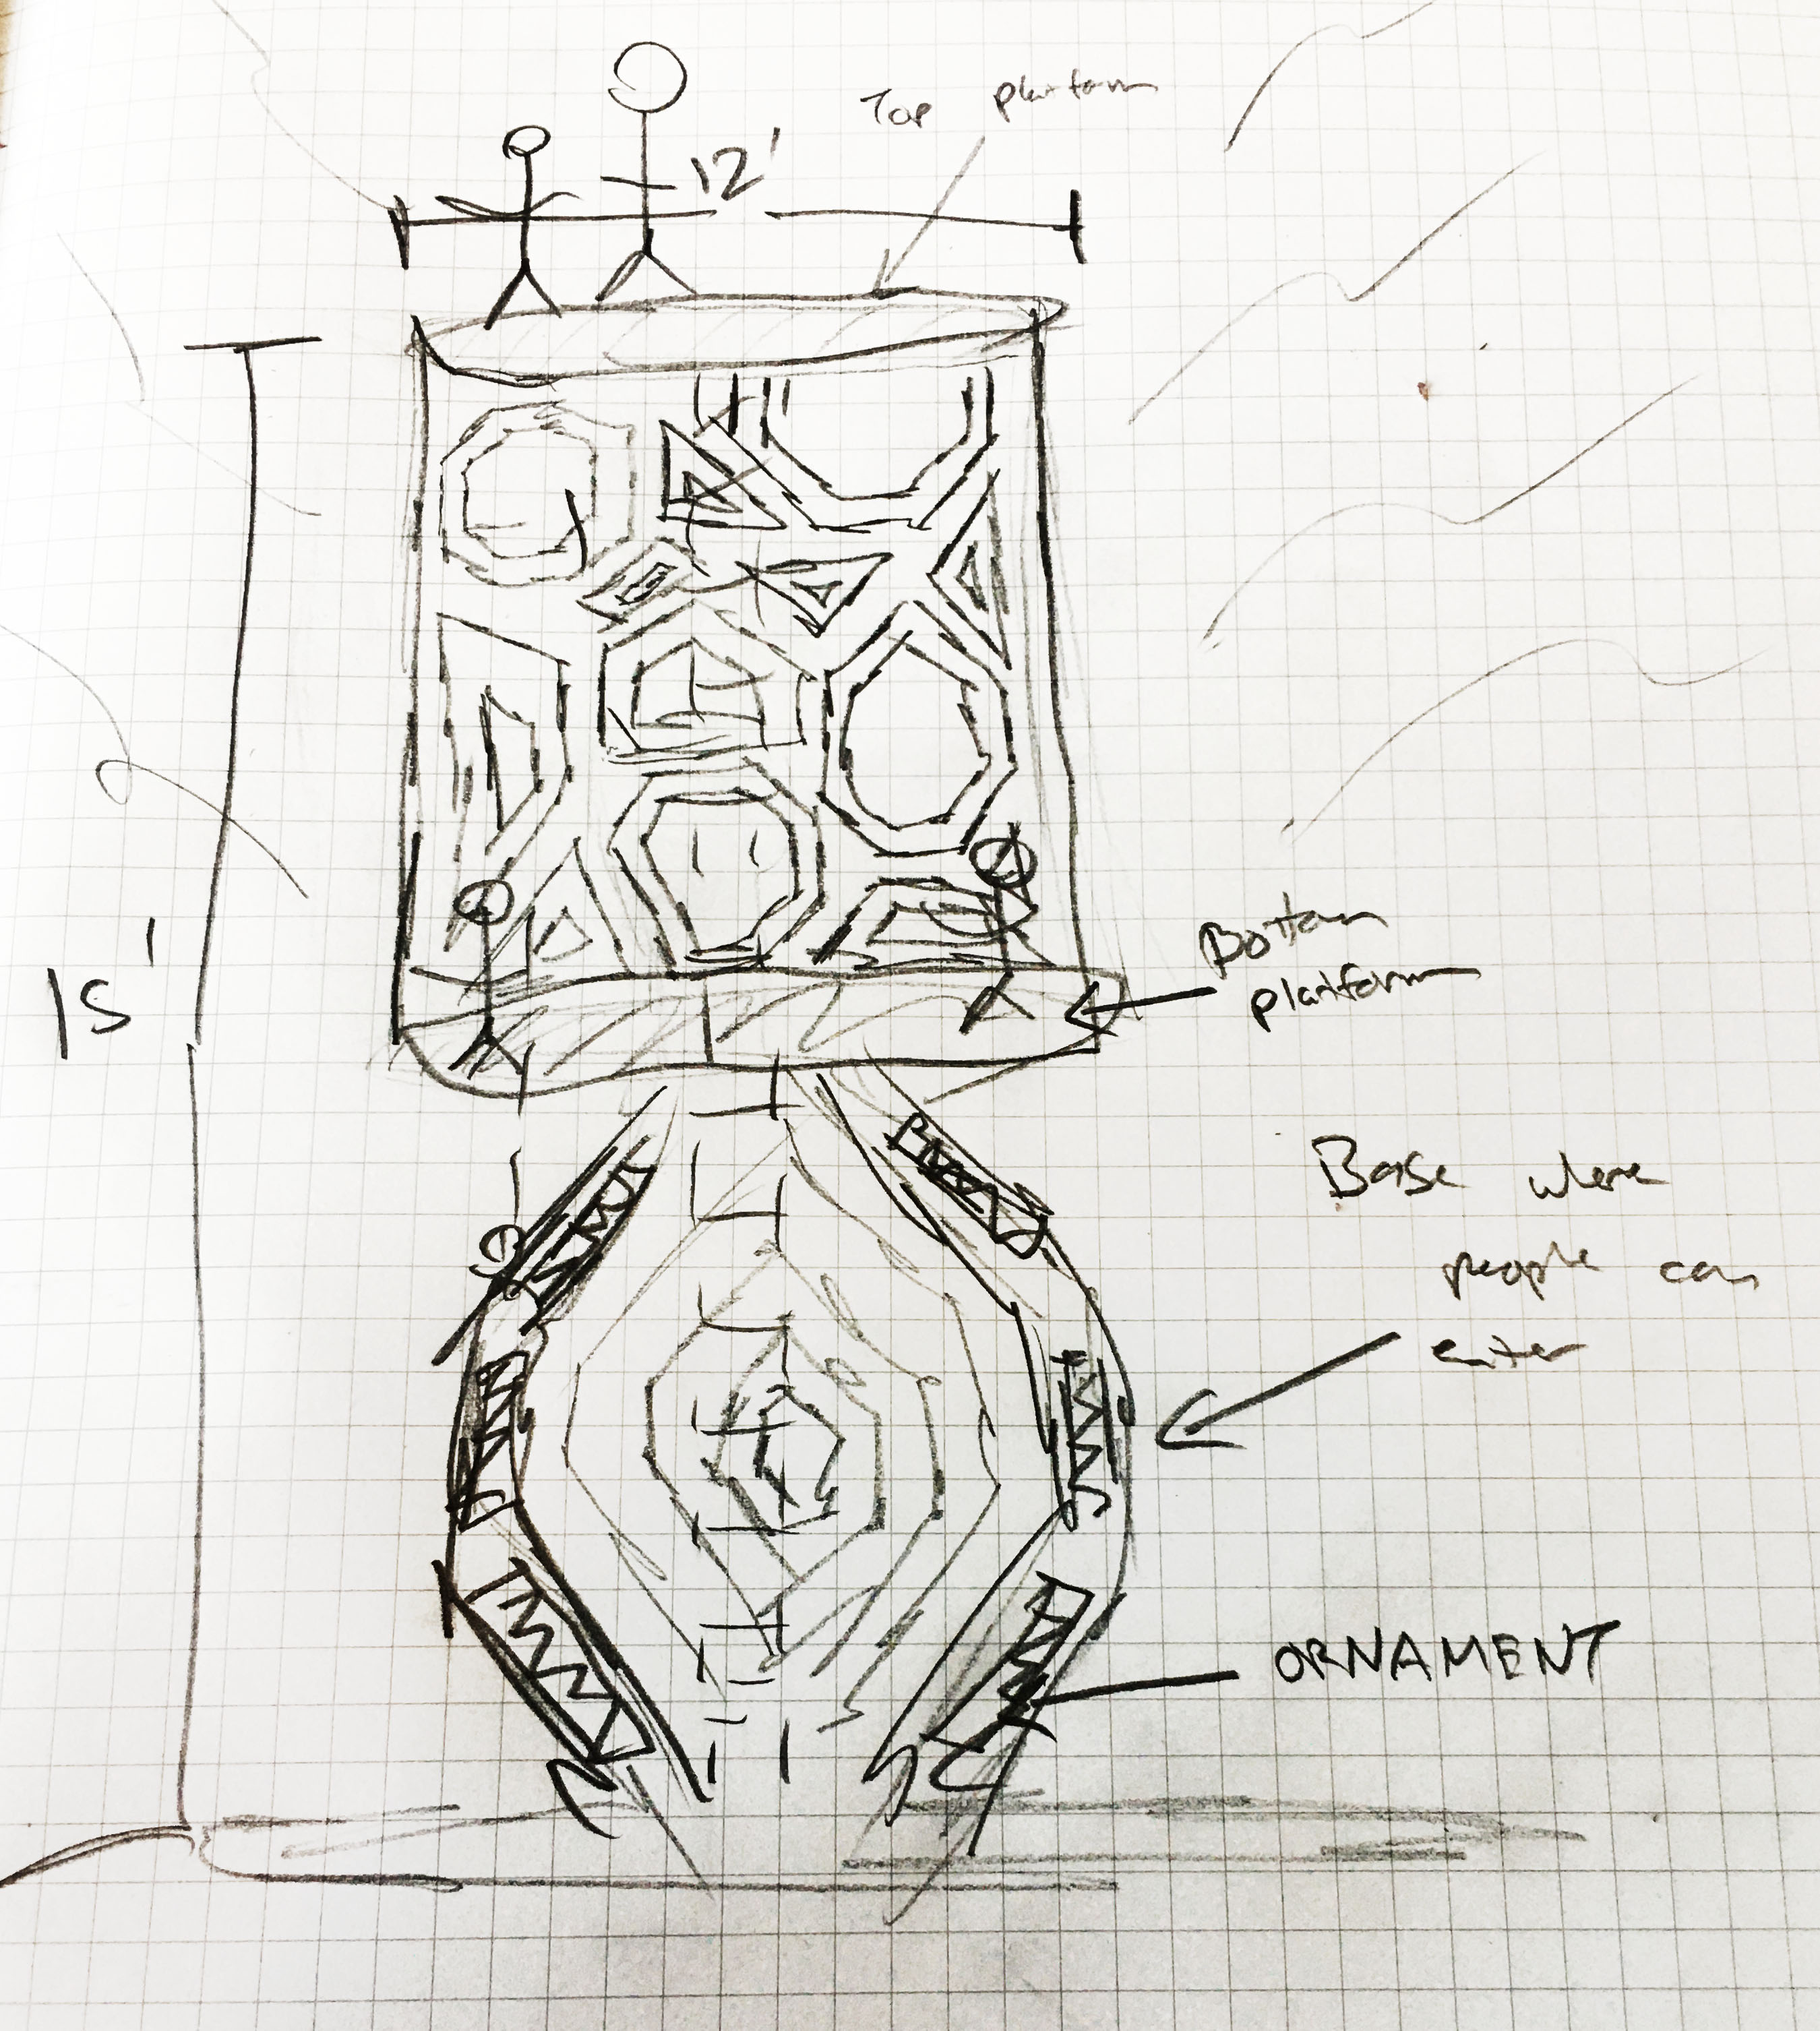 12'
Top platform
15'
Bottom
platform
Base where
people can
enter
ORNAMENT